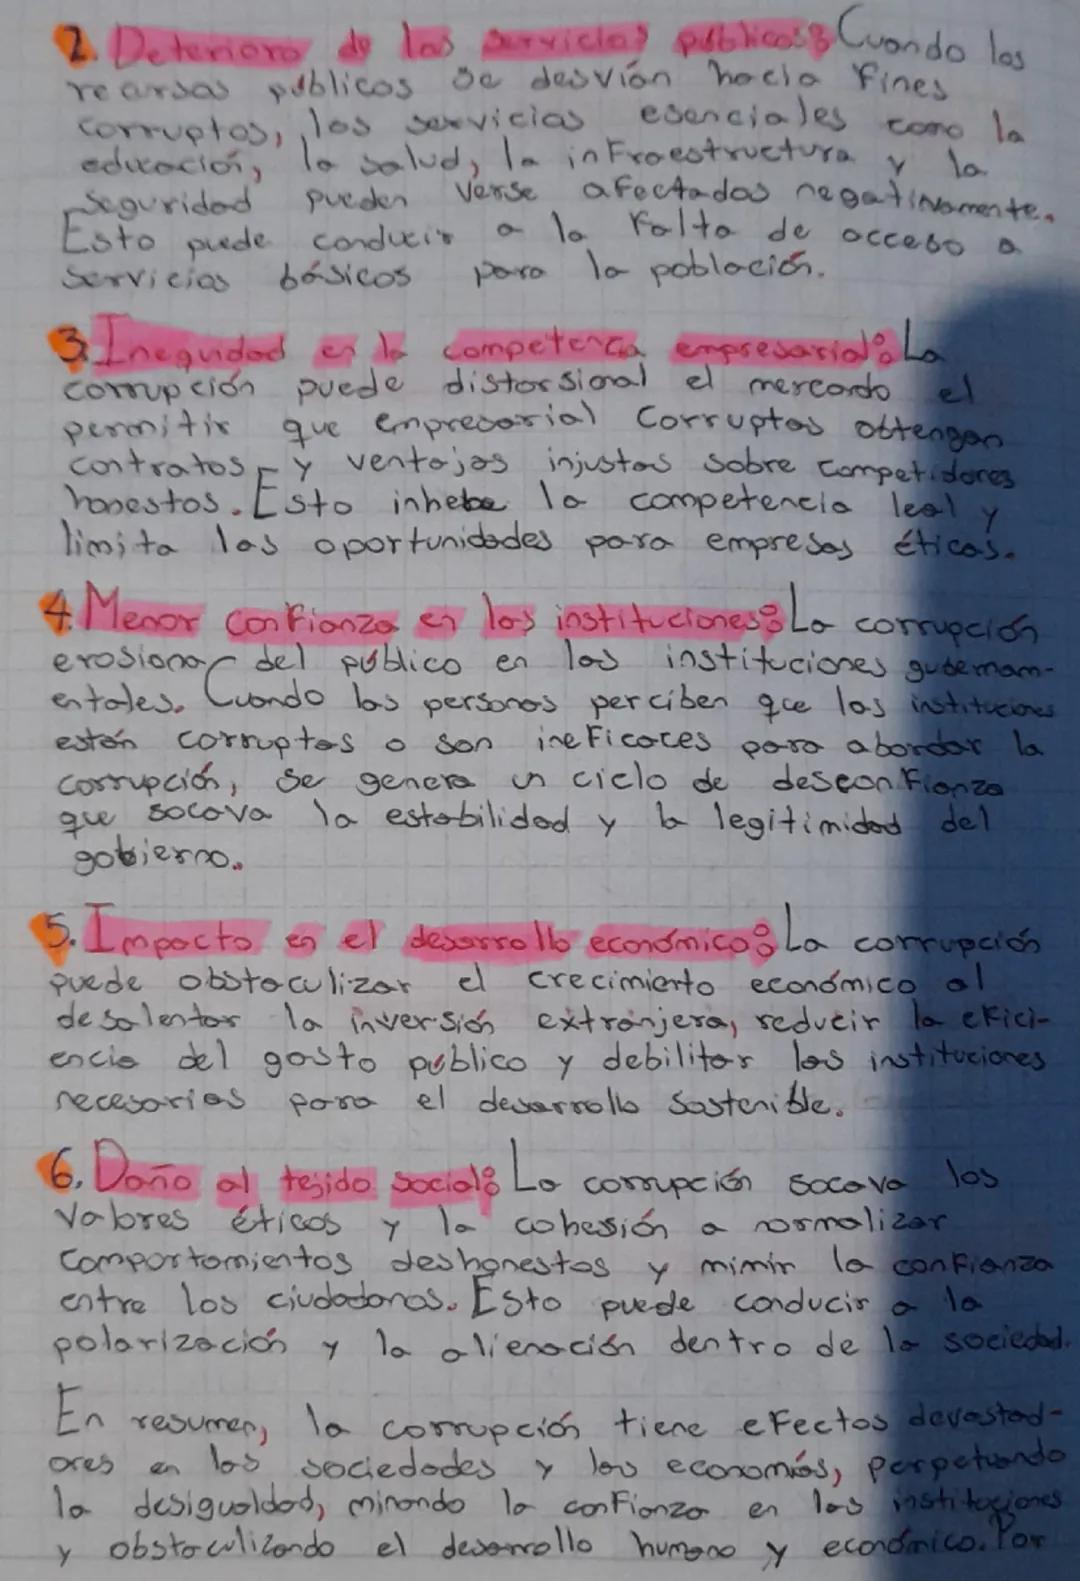 2. Deterioro de los servicios públicos: Cuando los
recursos públicos se desvián hacia fines
corruptos, los servicios esenciales como la
educación, la salud, la infraestructura y la
seguridad pueden verse afectados negativamente.
Esto puede conducir a la falta de acceso a
servicios básicos para la población.
3. Inequidad en la competencia empresarial: La
corrupción puede distorsional el mercardo el
permitir que empresarial corruptos obtengan
contratos y ventajas injustas sobre competidores
honestos. Esto inhebe la competencia leal y
limita las oportunidades para empresas éticas.
4. Menor confianza en las instituciones: La corrupción
erosiona del público en las instituciones gubernam-
entales. Cuando las personas perciben que las instituciones
están corruptas o son ineficaces para abordar la
corrupción, se genera un ciclo de desconfianza
que socava la estabilidad y la legitimidad del
gobierno.
5. Impacto en el desarrollo económico: La corrupción
puede obstaculizar el crecimiento económico al
desalentar la inversión extranjera, reducir la efici-
encia del gasto público y debilitar las instituciones
necesarias para el desarrollo sostenible.
6. Daño al tejido social: La corrupción socava los
valores éticos y la cohesión a normalizar
comportamientos deshonestos y mimir la confianza
entre los ciudadanos. Esto puede conducir a la
polarización y la alienación dentro de la sociedad.
En resumen, la corrupción tiene efectos devastad-
ores en las sociedades y las economías, perpetuando
la desigualdad, minando la confianza en las instituciones
y obstaculizando el desarrollo humano y económico. Por